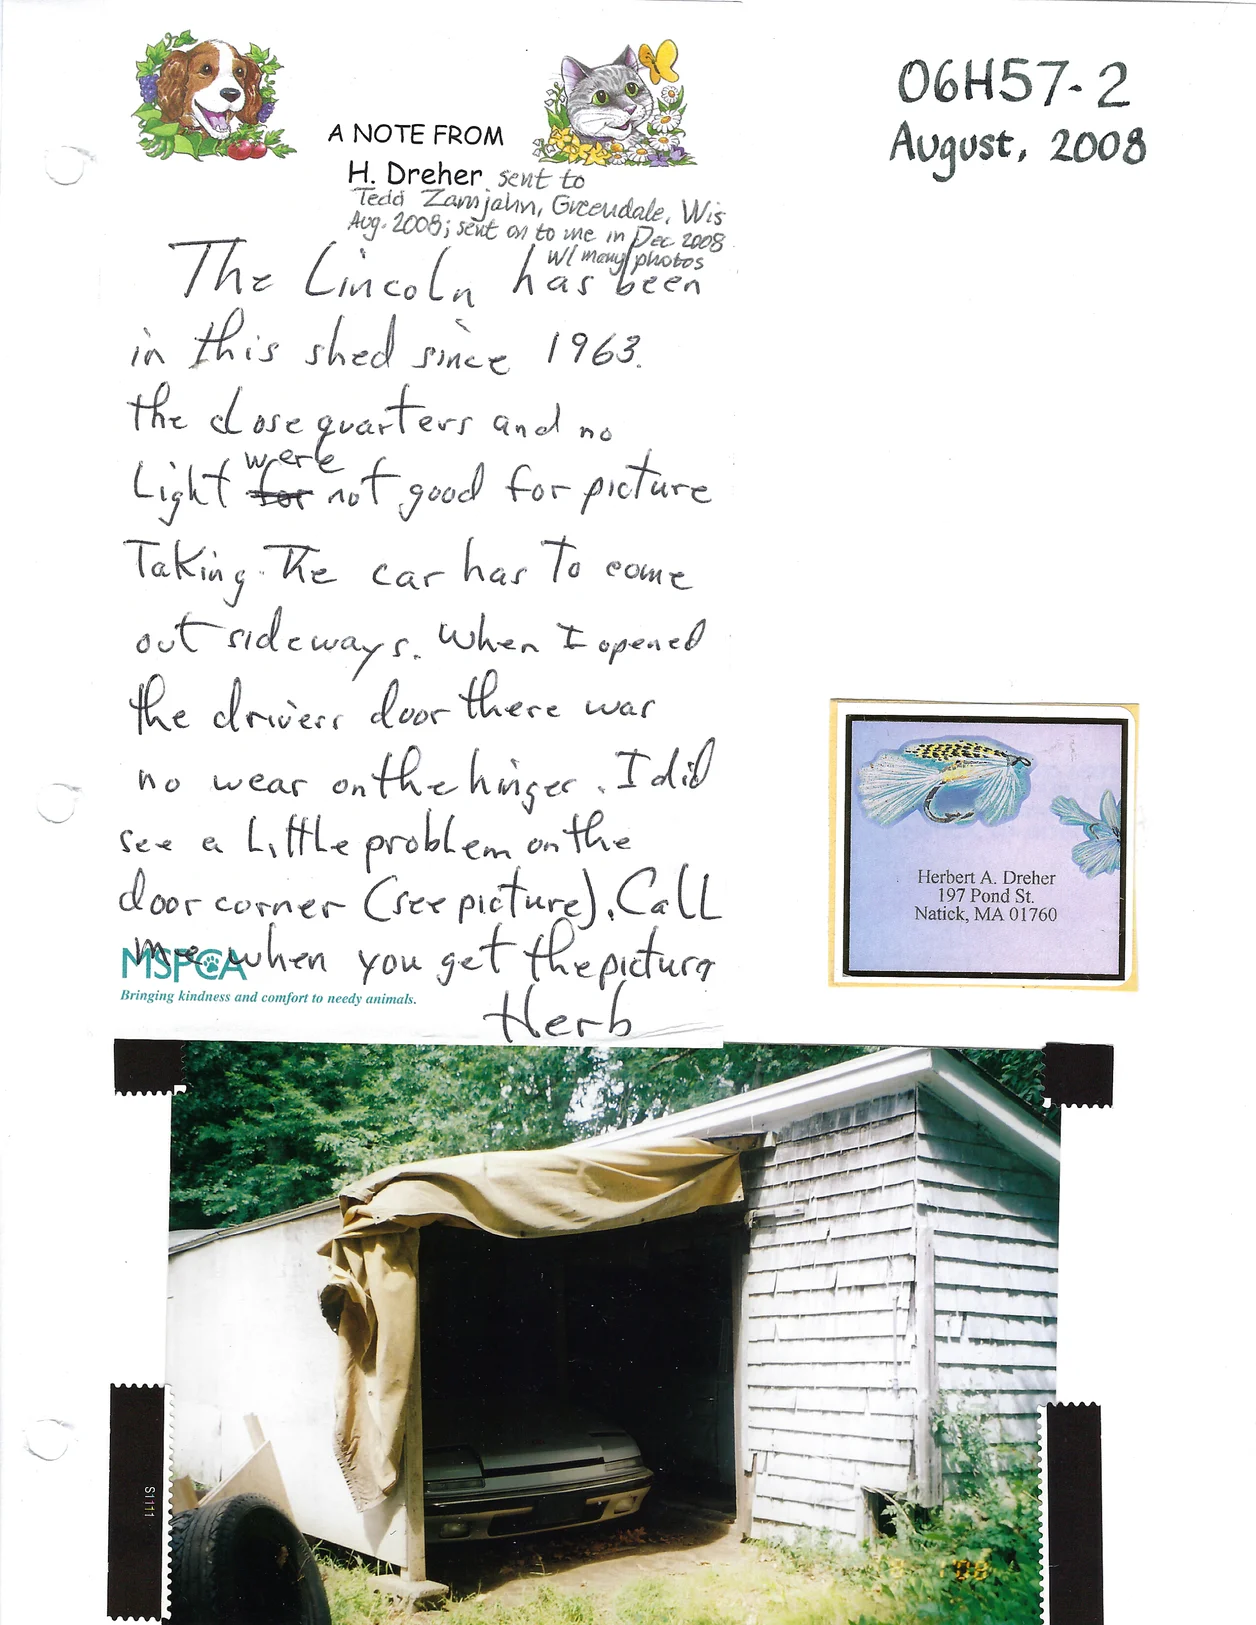 06H57-2
August, 2008
A NOTE FROM
H. Dreher sent to
Tedd Zamjahn, Greendale, Wis
Aug. 2008; sent on to me in Dec 2008
w/ many photos
The Lincoln has been
in this shed since 1963.
the close quarters and no
Light were not good for picture
Taking. The car has to come
out sideways. When I opened
the drivers door there was
no wear on the hinges. I did
see a Little problem on the
door corner (see picture). Call
me when you get the picture
Herb
MSPCA
Bringing kindness and comfort to needy animals.
Herbert A. Dreher
197 Pond St.
Natick, MA 01760
S1111